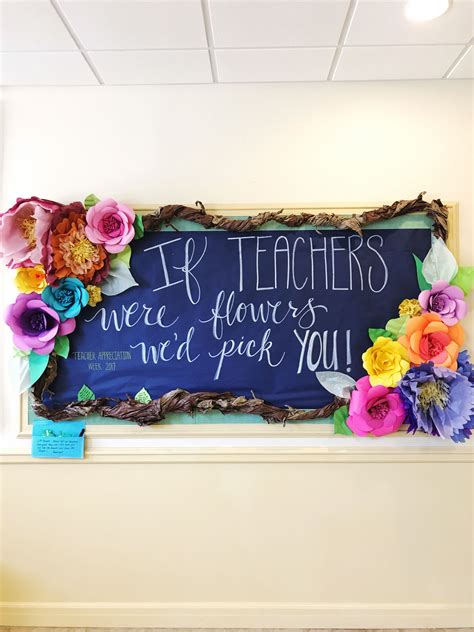 If TEACHERS
were flowers
we'd pick YOU!
TEACHER APPRECIATION
WEEK 2017